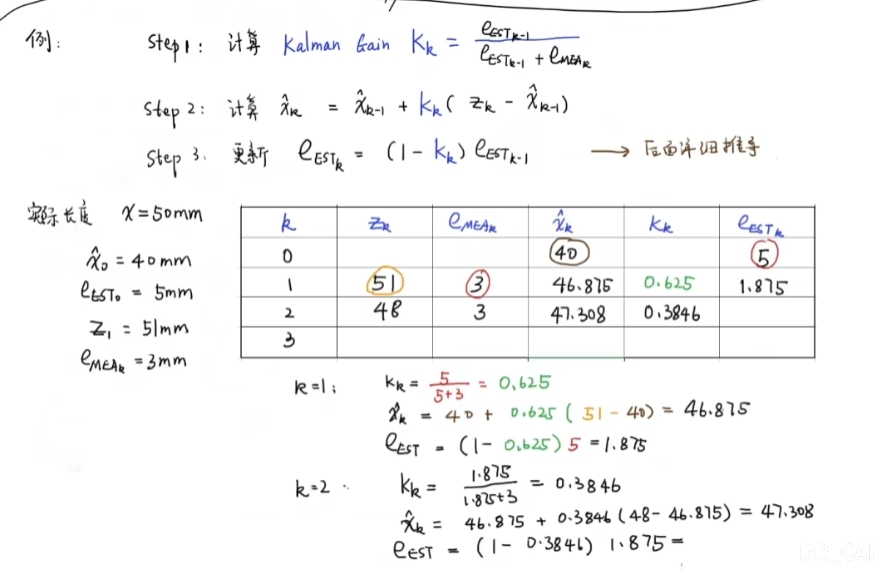 例:
Step 1: 计算 Kalman Gain Kₖ = e_ESTₖ₋₁ / (e_ESTₖ₋₁ + e_MEAₖ)
Step 2: 计算 x̂ₖ = x̂ₖ₋₁ + kₖ( zₖ - x̂ₖ₋₁)
Step 3. 更新 e_ESTₖ = (1 - kₖ) e_ESTₖ₋₁ → 后面详细推导
实际长度 x = 50mm
x̂₀ = 40mm
e_EST₀ = 5mm
z₁ = 51mm
e_MEAₖ = 3mm
k zₖ e_MEAₖ x̂ₖ Kₖ e_ESTₖ
0 40 5
1 51 3 46.875 0.625 1.875
2 48 3 47.308 0.3846
3
k=1: Kₖ = 5 / (5+3) = 0.625
x̂ₖ = 40 + 0.625 ( 51 - 40) = 46.875
e_EST = (1 - 0.625) 5 = 1.875
k=2 Kₖ = 1.875 / (1.875+3) = 0.3846
x̂ₖ = 46.875 + 0.3846 (48 - 46.875) = 47.308
e_EST = (1 - 0.3846) 1.875 =